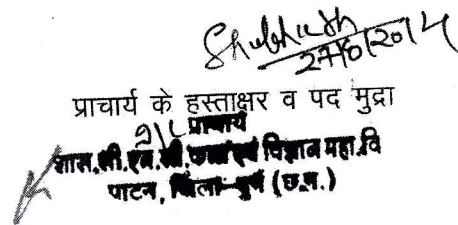 27/6/2014
प्राचार्य के हस्ताक्षर व पद मुद्रा
प्राचार्य
शास. सी.एल.सी. कला एवं विज्ञान महा.वि
पाटन, जिला-दुर्ग (छ.ग.)